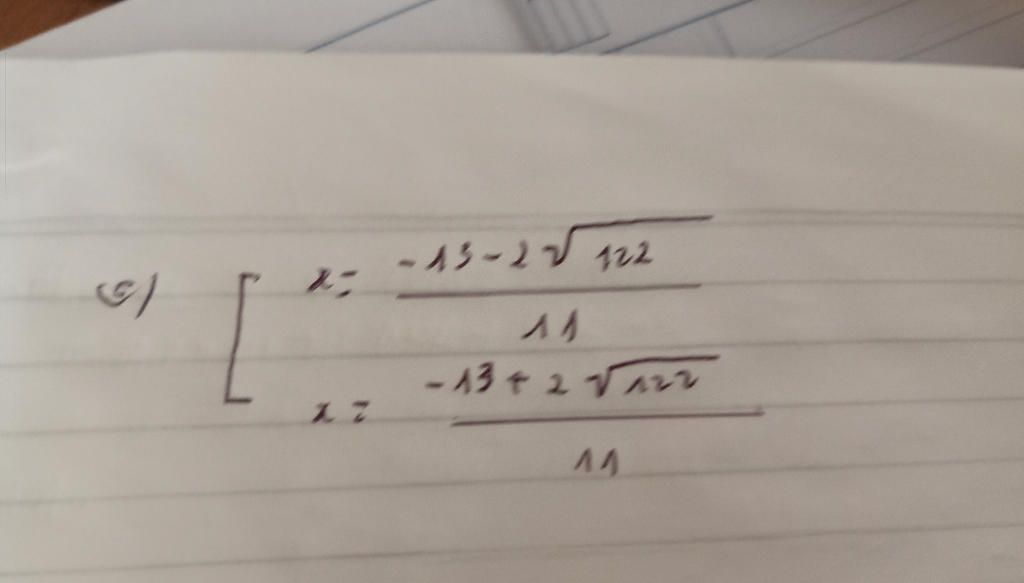 ⇔) [ x = (-13 - 2√122) / 11
x = (-13 + 2√122) / 11